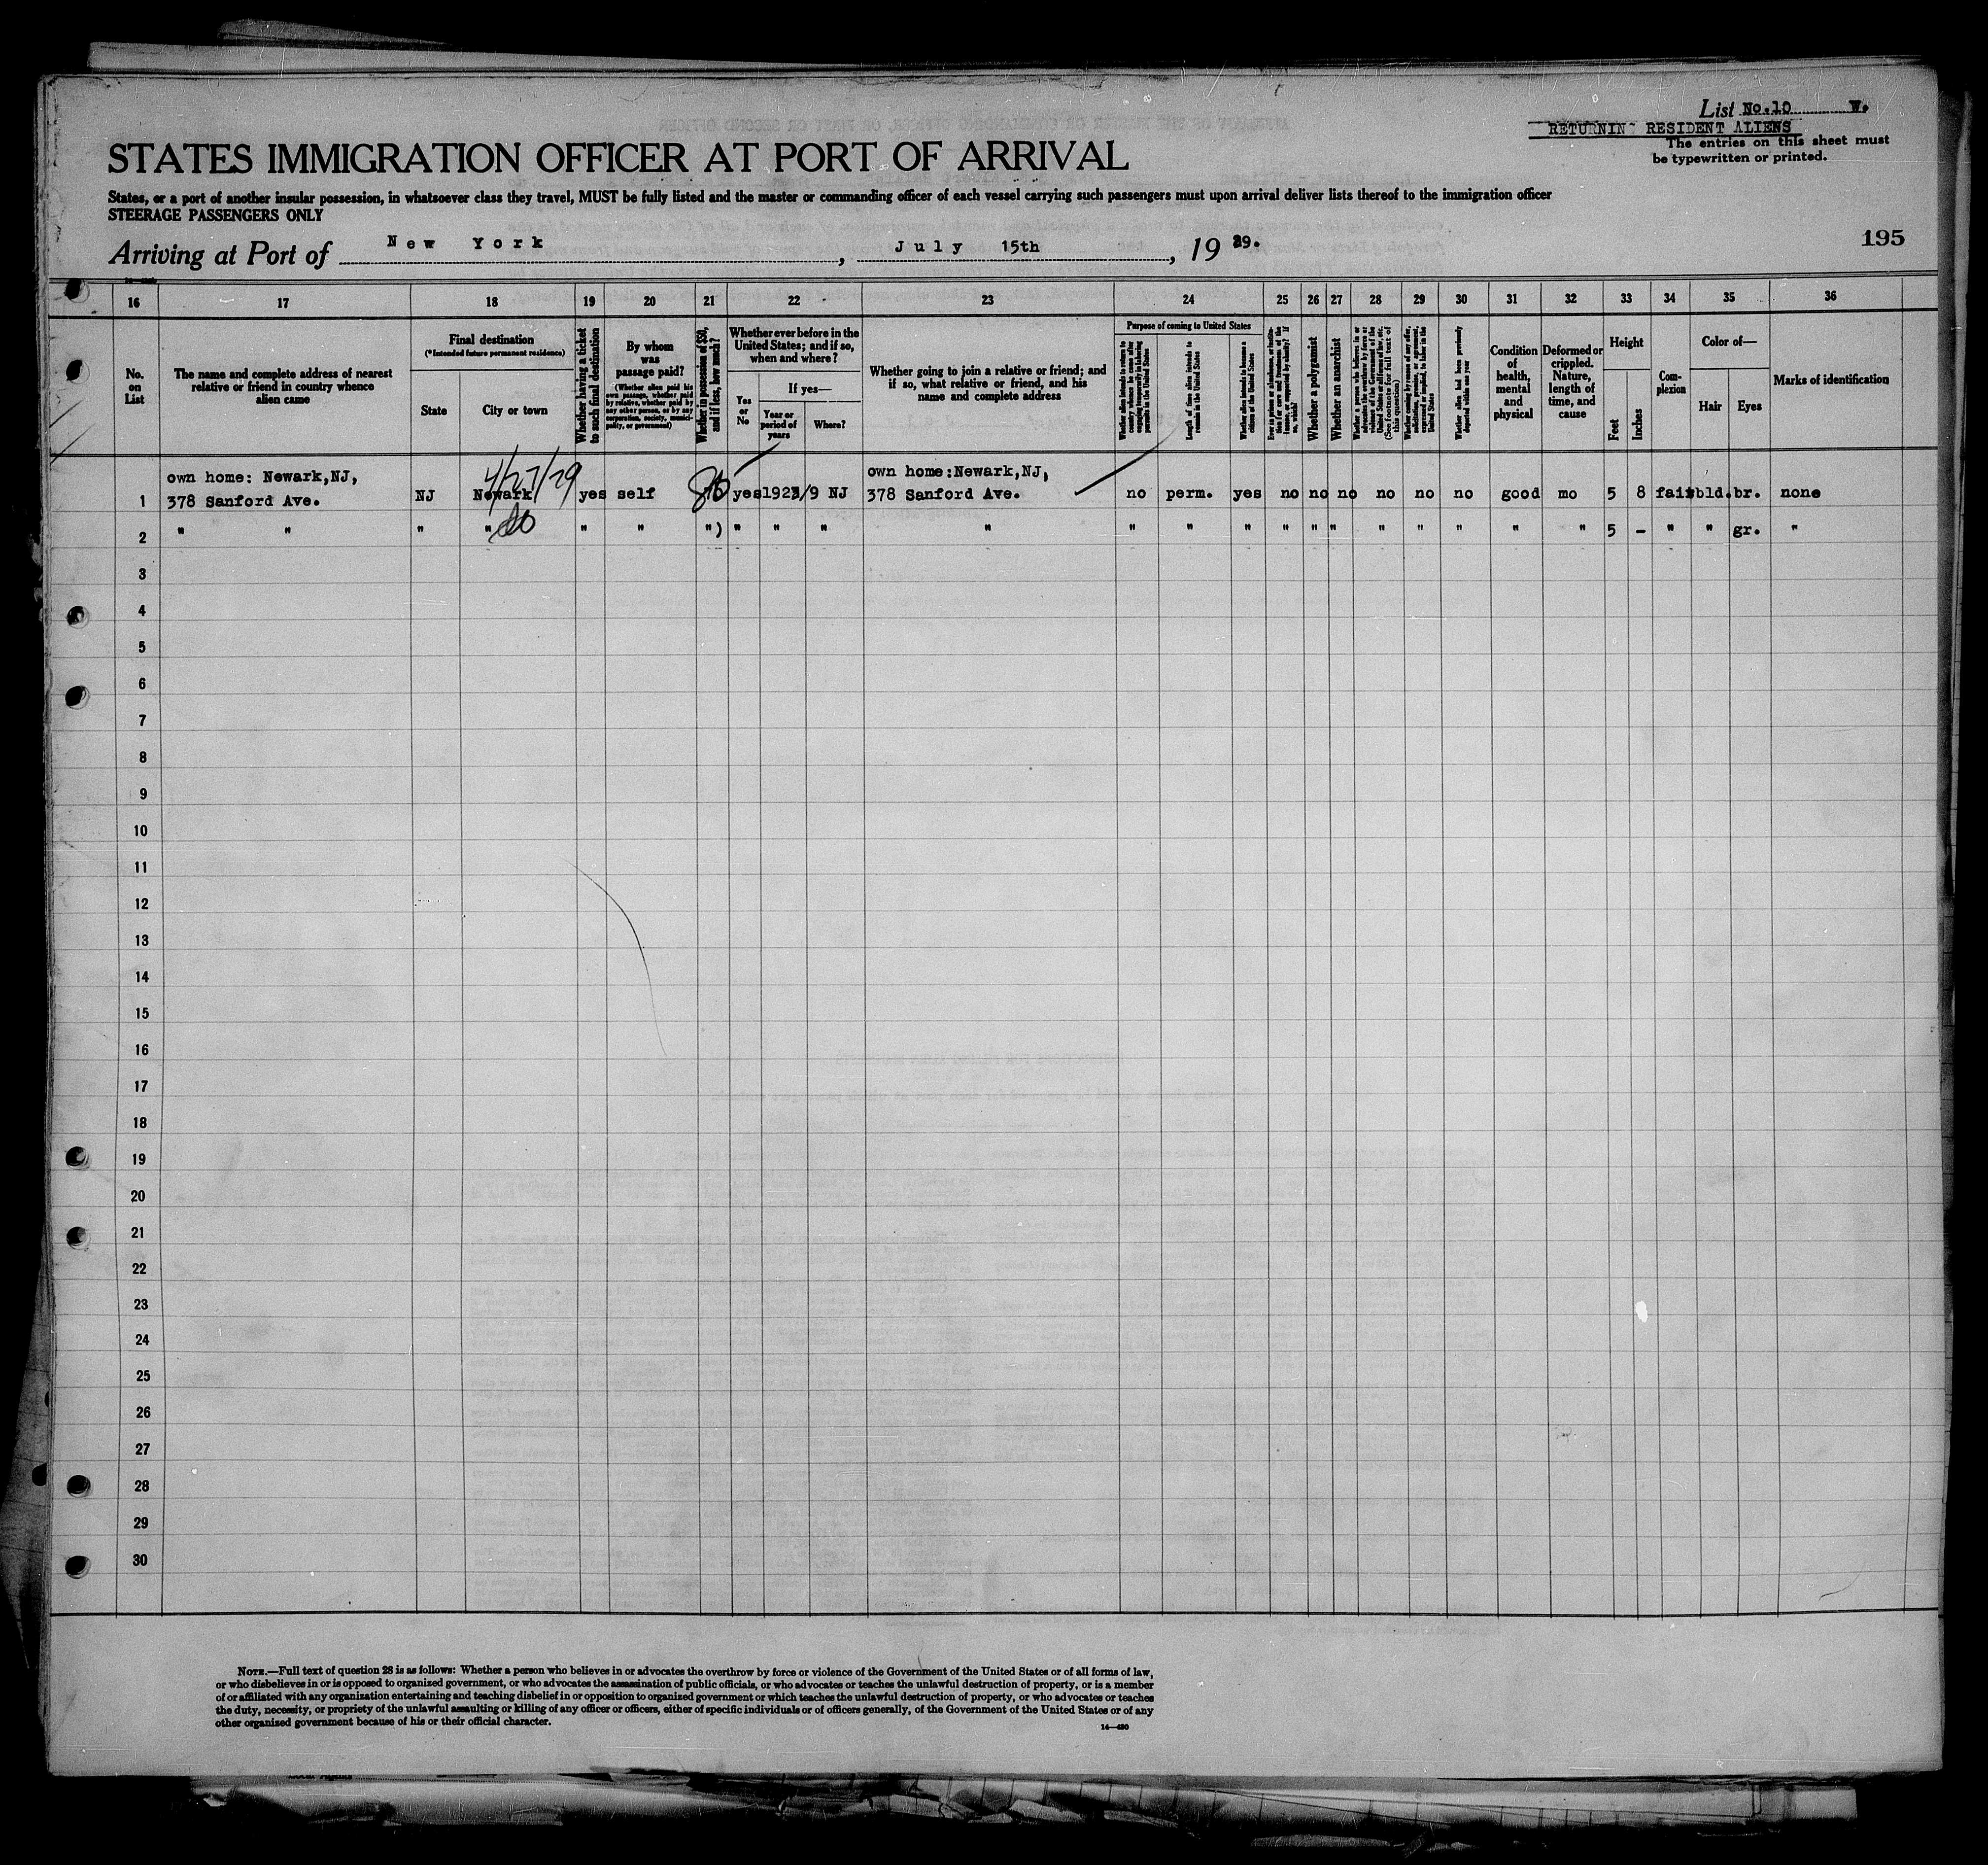 List No.10 W.
RETURNIN RESIDENT ALIENS
The entries on this sheet must
be typewritten or printed.
STATES IMMIGRATION OFFICER AT PORT OF ARRIVAL
States, or a port of another insular possession, in whatsoever class they travel, MUST be fully listed and the master or commanding officer of each vessel carrying such passengers must upon arrival deliver lists thereof to the immigration officer
STEERAGE PASSENGERS ONLY
Arriving at Port of New York, July 15th, 19 29.
195
16 17 18 19 20 21 22 23 24 25 26 27 28 29 30 31 32 33 34 35 36
No.
on
List
The name and complete address of nearest
relative or friend in country whence
alien came
Final destination
(*Intended future permanent residence)
State
City or town
Whether having a ticket
to such final destination
By whom
was
passage paid?
(Whether alien paid his
own passage, whether paid
by relative, whether paid by
any other person, or by any
corporation, society, munici-
pality, or government)
Whether in possession of $50,
and if less, how much?
Whether ever before in the
United States; and if so,
when and where?
Yes
or
No
If yes—
Year or
period of
years
Where?
Whether going to join a relative or friend; and
if so, what relative or friend, and his
name and complete address
Purpose of coming to United States
Whether alien intends to return to
country whence he came after
engaging temporarily in laboring
pursuits in the United States
Length of time alien intends to
remain in the United States
Whether alien intends to become a
citizen of the United States
Ever in prison or almshouse, or institu-
tion for care and treatment of the
insane, or supported by charity? If
so, which?
Whether a polygamist
Whether an anarchist
Whether a person who believes in or
advocates the overthrow by force or
violence of the Government of the
United States or all forms of law, etc.
(See footnote for full text of
this question)
Whether coming by reason of any offer,
solicitation, promise, or agreement,
expressed or implied, to labor in the
United States
Whether alien had been previously
deported within one year
Condition
of
health,
mental
and
physical
Deformed or
crippled.
Nature,
length of
time, and
cause
Height
Feet
Inches
Com-
plexion
Color of—
Hair
Eyes
Marks of identification
own home: Newark,NJ, 4/27/29 own home:Newark,NJ,
1 378 Sanford Ave. NJ Newark yes self yes NJ 378 Sanford Ave. no perm. yes no no no no no no good mo 5 8 fair bld. br. none
2 " " " " do " " ") " " " " " " " " " " " " " " " 5 - " " gr. "
3
4
5
6
7
8
9
10
11
12
13
14
15
16
17
18
19
20
21
22
23
24
25
26
27
28
29
30
NOTE.—Full text of question 28 is as follows: Whether a person who believes in or advocates the overthrow by force or violence of the Government of the United States or of all forms of law,
or who disbelieves in or is opposed to organized government, or who advocates the assassination of public officials, or who advocates or teaches the unlawful destruction of property, or is a member
of or affiliated with any organization entertaining and teaching disbelief in or opposition to organized government or which teaches the unlawful destruction of property, or who advocates or teaches
the duty, necessity, or propriety of the unlawful assaulting or killing of any officer or officers, either of specific individuals or of officers generally, of the Government of the United States or of any
other organized government because of his or their official character.
14—430